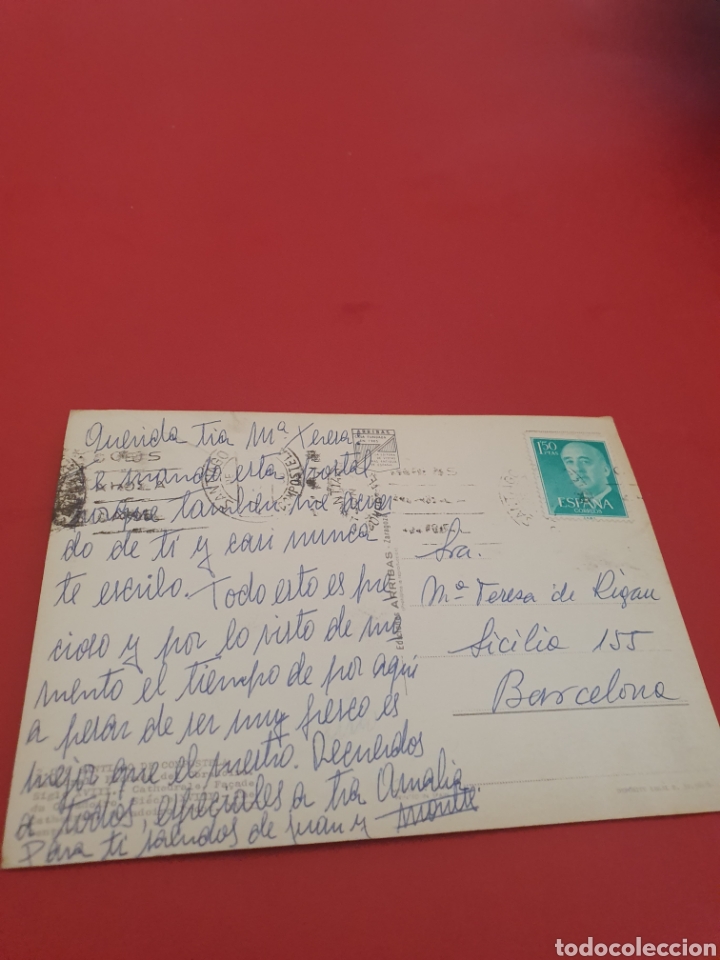 Querida tía Mª Teresa:
te mando esta postal
porque también me acuer
do de ti y casi nunca
te escribo. Todo esto es pre
cioso y por lo visto de mo
mento el tiempo de por aquí
a pesar de ser muy fresco es
mejor que el nuestro. Recuerdos
a todos, especiales a tía Amalia
Para ti saludos de Juan y Montse.
ARRIBAS
1,50
PTAS
ESPAÑA
CORREOS
Ediciones ARRIBAS - Zaragoza
Sra.
Mª Teresa de Rigau
Sicilia 155
Barcelona
todocoleccion